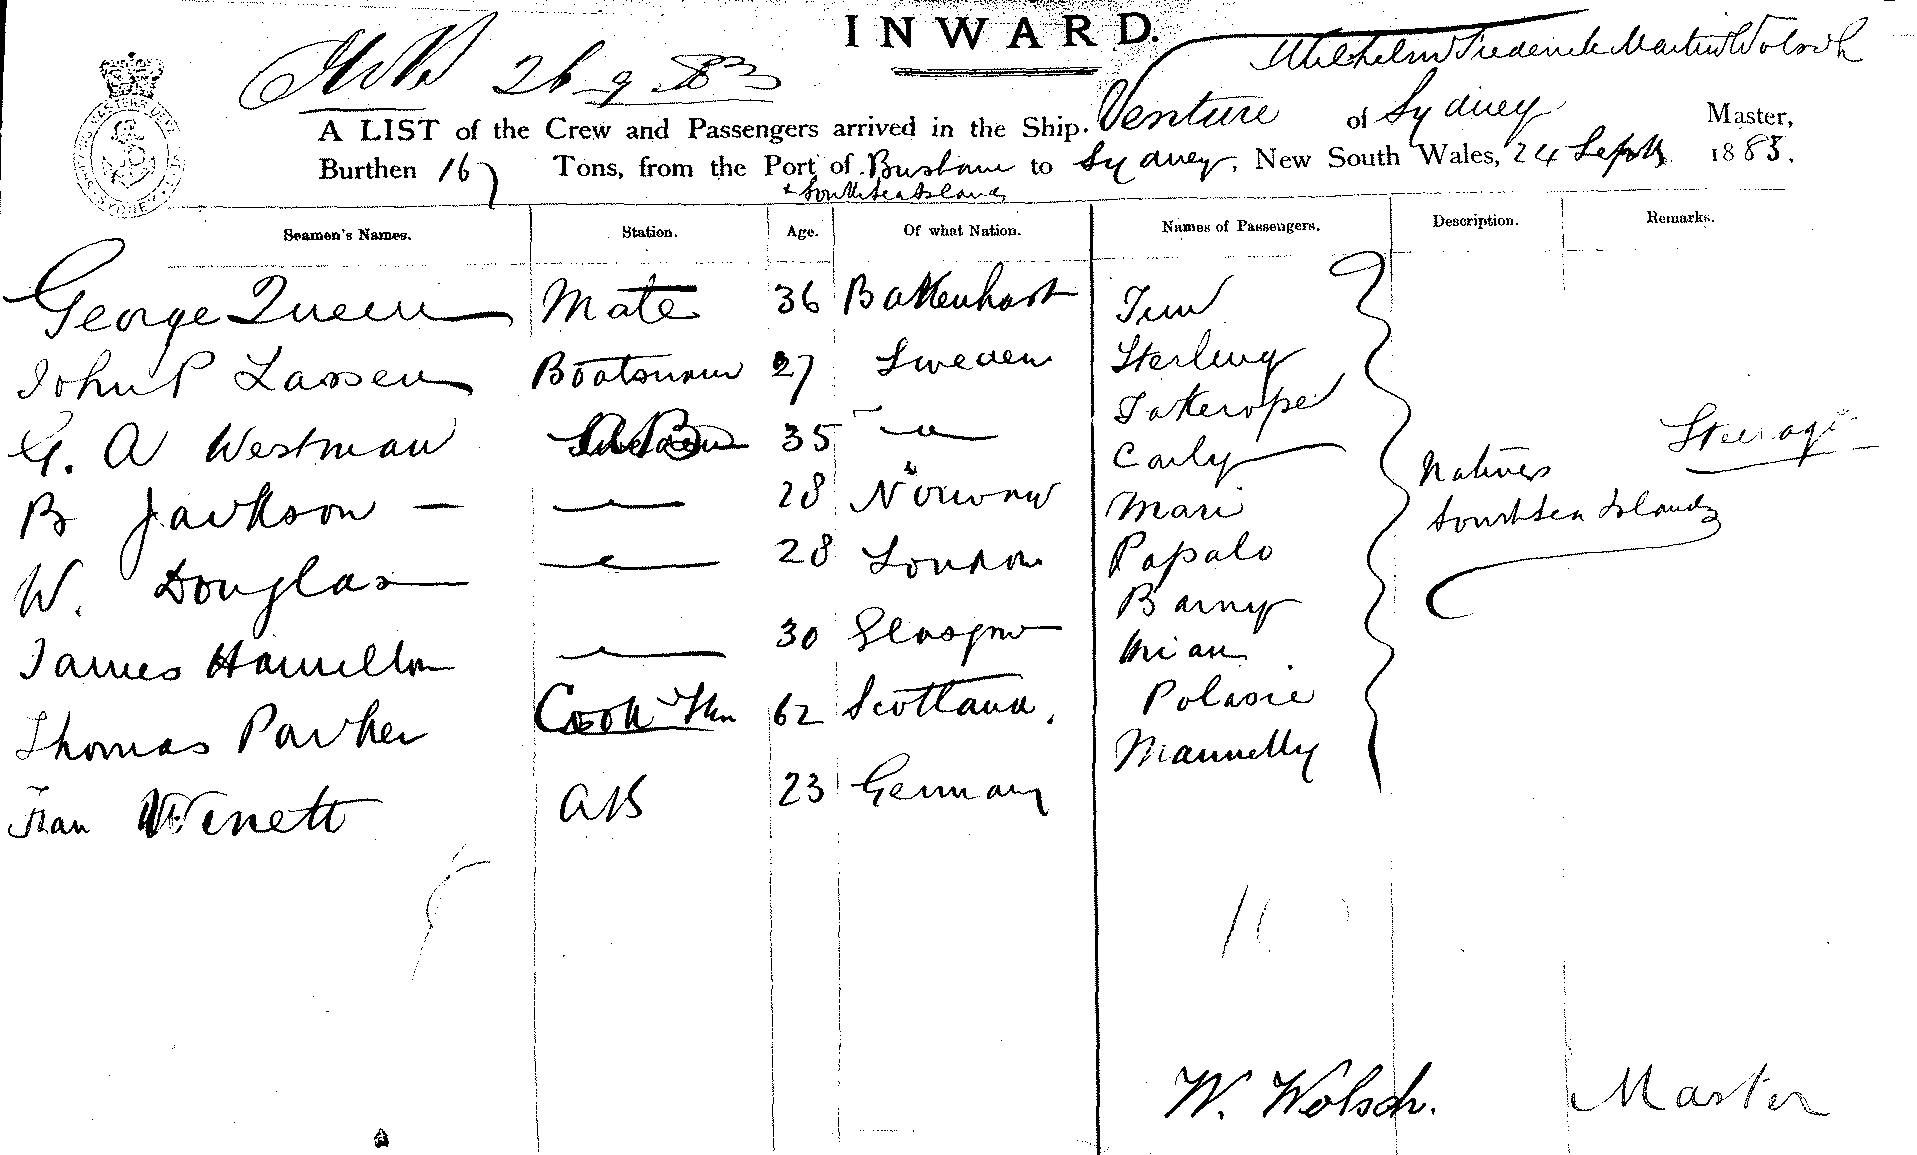 INWARD.
26 9 83
Wilhelm Frederick Martin Wolsch
A LIST of the Crew and Passengers arrived in the Ship. Venture of Sydney Master,
Burthen 167 Tons, from the Port of Brisbane to Sydney, New South Wales, 24 Septr 1883.
& South Sea Islands
Seamen's Names. Station. Age. Of what Nation. Names of Passengers. Description. Remarks.
George Queen Mate 36
John P Lassen Boatsman 27 Sweden Sterling
G. A Westman AB 35 Carly Steerage
B Jackson 28 Norway Mari Natives
South Sea Islands
W. Douglas 28 London Papalo
Barny
James Hamilton 30 Glasgow
Thomas Parker Cook 62 Scotland. Polasie
Winett AB 23 Germany
W. Wolsch. Master